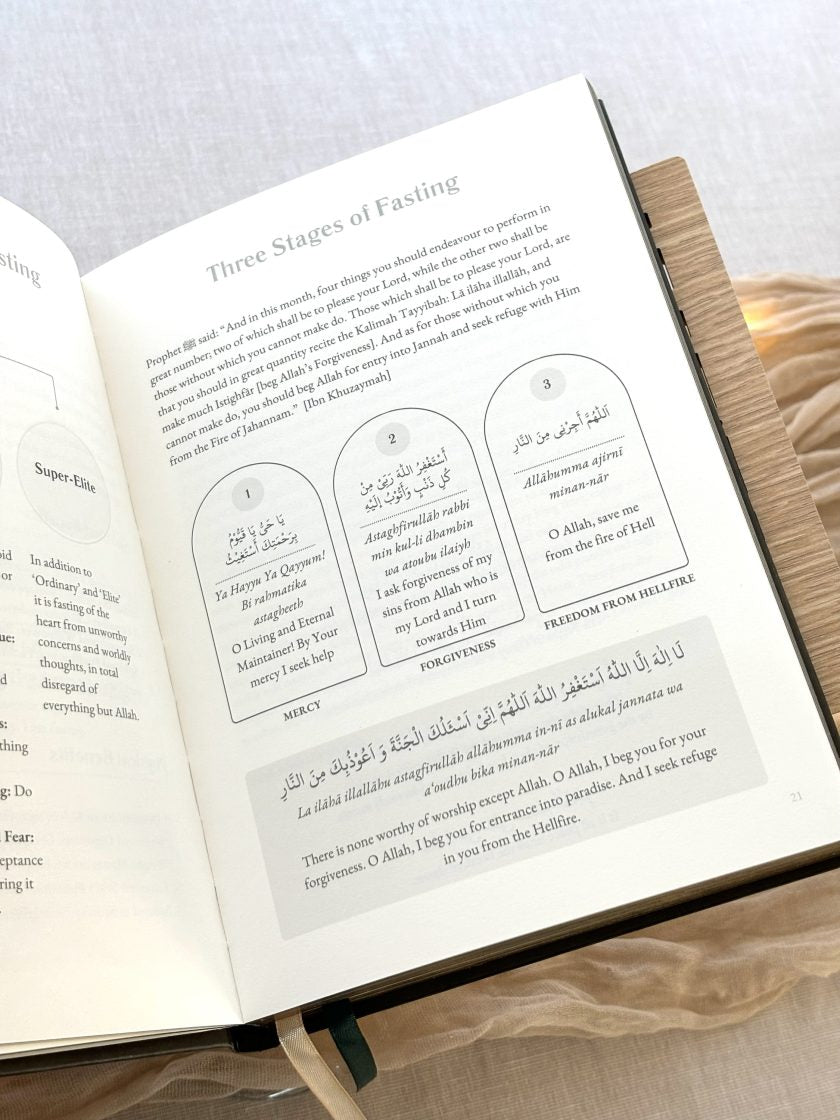 sting
Super-Elite
oid
or
ue:
d
s:
thing
g: Do
l Fear:
eptance
ring it
In addition to
‘Ordinary’ and ‘Elite’
it is fasting of the
heart from unworthy
concerns and worldly
thoughts, in total
disregard of
everything but Allah.
Three Stages of Fasting
Prophet ﷺ said: “And in this month, four things you should endeavour to perform in
great number; two of which shall be to please your Lord, while the other two shall be
those without which you cannot make do. Those which shall be to please your Lord, are
that you should in great quantity recite the Kalimah Tayyibah: Lā ilāha illallāh, and
make much Istighfār [beg Allah’s Forgiveness]. And as for those without which you
cannot make do, you should beg Allah for entry into Jannah and seek refuge with Him
from the Fire of Jahannam.” [Ibn Khuzaymah]
1
يَا حَيُّ يَا قَيُّوْمُ
بِرَحْمَتِكَ أَسْتَغِيْثُ
Ya Hayyu Ya Qayyum!
Bi rahmatika
astagheeth
O Living and Eternal
Maintainer! By Your
mercy I seek help
MERCY
2
أَسْتَغْفِرُ اللّٰهَ رَبِّيْ مِنْ
كُلِّ ذَنْبٍ وَأَتُوْبُ إِلَيْهِ
Astaghfirullāh rabbi
min kul-li dhambin
wa atoubu ilaiyh
I ask forgiveness of my
sins from Allah who is
my Lord and I turn
towards Him
FORGIVENESS
3
اَللّٰهُمَّ أَجِرْنِي مِنَ النَّارِ
Allāhumma ajirnī
minan-nār
O Allah, save me
from the fire of Hell
FREEDOM FROM HELLFIRE
لَا إِلٰهَ إِلَّا اللّٰهُ اَسْتَغْفِرُ اللّٰهَ اَللّٰهُمَّ اِنِّىْ اَسْئَلُكَ الْجَنَّةَ وَ اَعُوْذُبِكَ مِنَ النَّارِ
La ilāhā illallāhu astagfirullāh allāhumma in-nī as alukal jannata wa
a‘oudhu bika minan-nār
There is none worthy of worship except Allah. O Allah, I beg you for your
forgiveness. O Allah, I beg you for entrance into paradise. And I seek refuge
in you from the Hellfire.
21